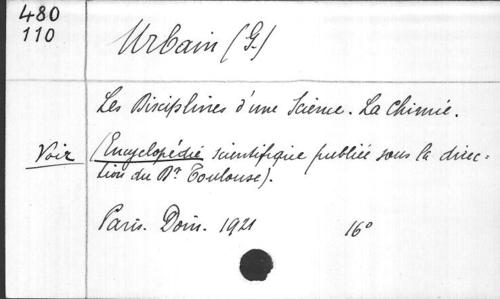 480
110
Urbain (G.)
Les Disciplines d'une Science. La Chimie.
Voir (Encyclopédie scientifique publiée sous la direc=
tion du Dr Toulouse).
Paris. Doin. 1921 16°